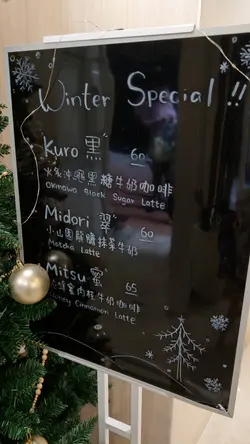 Winter Special !!
Kuro 黑 60
沖繩黑糖牛奶咖啡
Okinawa Black Sugar Latte
Midori 翠 60
小山園 抹茶牛奶
Matcha Latte
Mitsu 蜜 65
蜜肉桂牛奶咖啡
Honey Cinnamon Latte